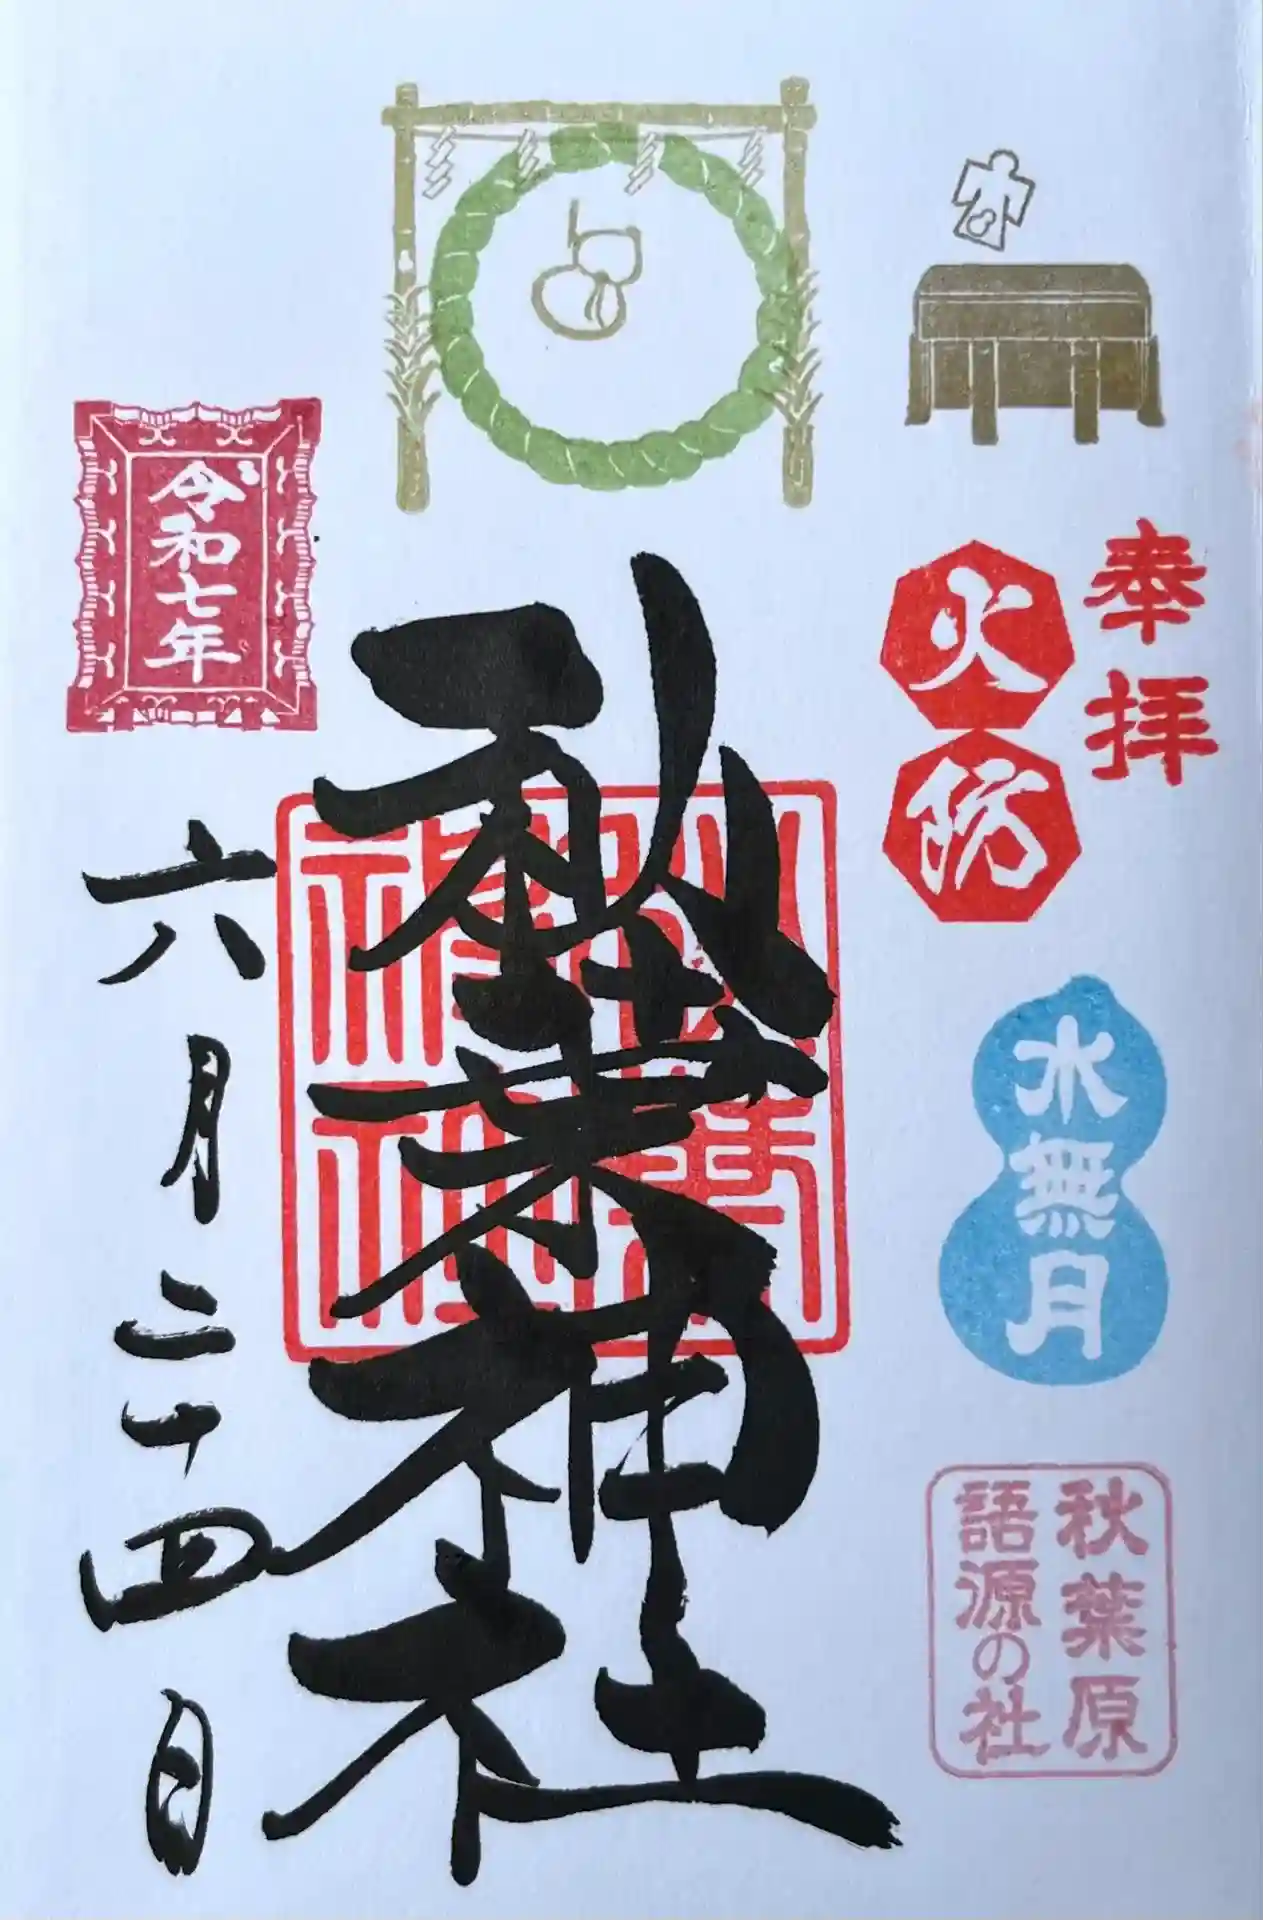 奉拝
火防
水無月
秋葉原
語源の社
秋葉神社
秋葉
神社
令和七年
六月二十四日